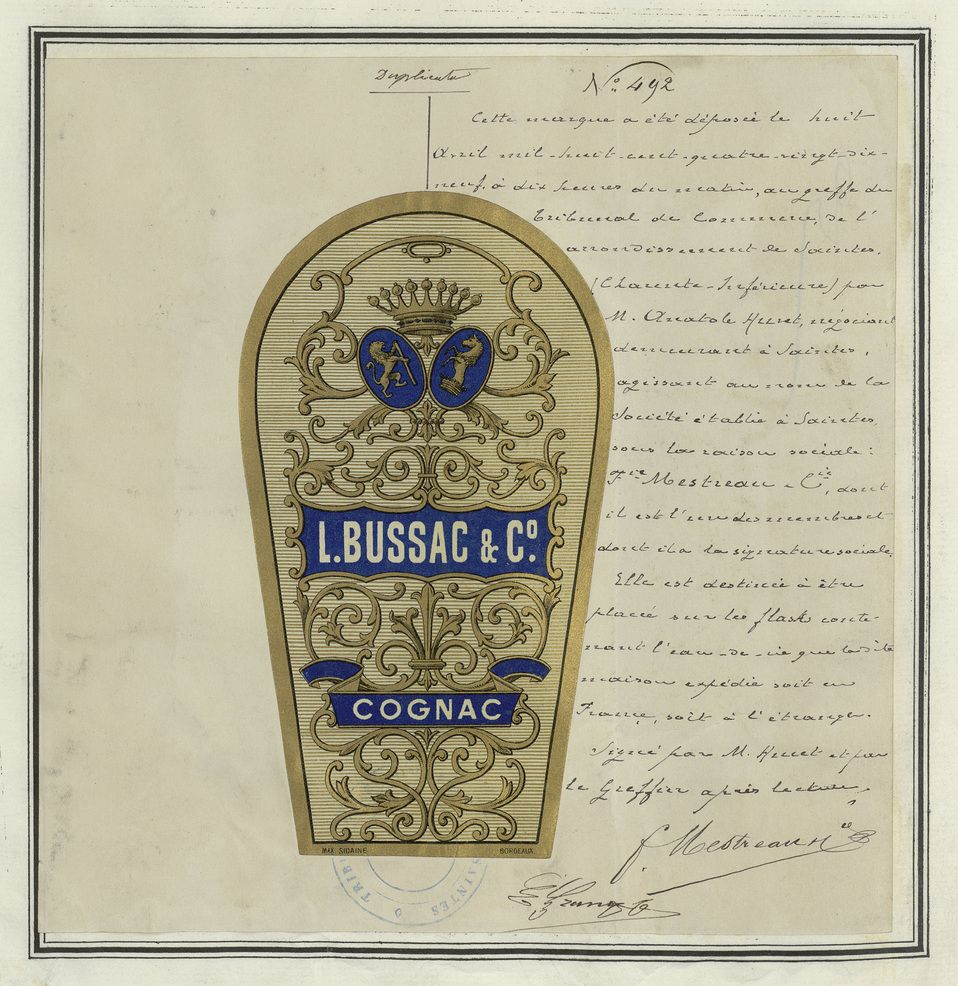 Duplicata
N° 492
Cette marque a été déposée le huit
Avril mil-huit-cent-quatre-vingt-dix-
neuf, à dix heures du matin, au greffe du
Tribunal de Commerce, de l'
arrondissement de Saintes,
(Charente-Inférieure) par
M. Anatole Huet, négociant
demeurant à Saintes,
agissant au nom de la
Société établie à Saintes,
sous la raison sociale:
Fre Mestreau & Cie, dont
il est l'un des membres et
dont il a la signature sociale.
Elle est destinée à être
placée sur les flask conte-
nant l'eau-de-vie que la dite
maison expédie soit en
France, soit à l'étranger.
Signé par M. Huet et par
le Greffier après lecture,
f Mestreau & Cie
L. BUSSAC & Co.
COGNAC
MAX SIDAINE
BORDEAUX
TRIB
SAINTES